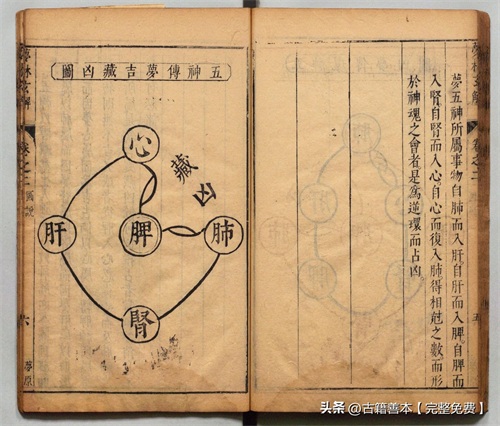 夢五神所屬事物自肺而入肝自肝而入脾自脾而
入腎自腎而入心自心而復入肺得相尅之數而形
於神魂之會者是爲逆環而占凶
五神傳夢吉藏凶圖
心
藏凶
肝
脾
肺
腎
夢林玄解
卷之二
六
夢原
头条 @古籍善本【完整免费】